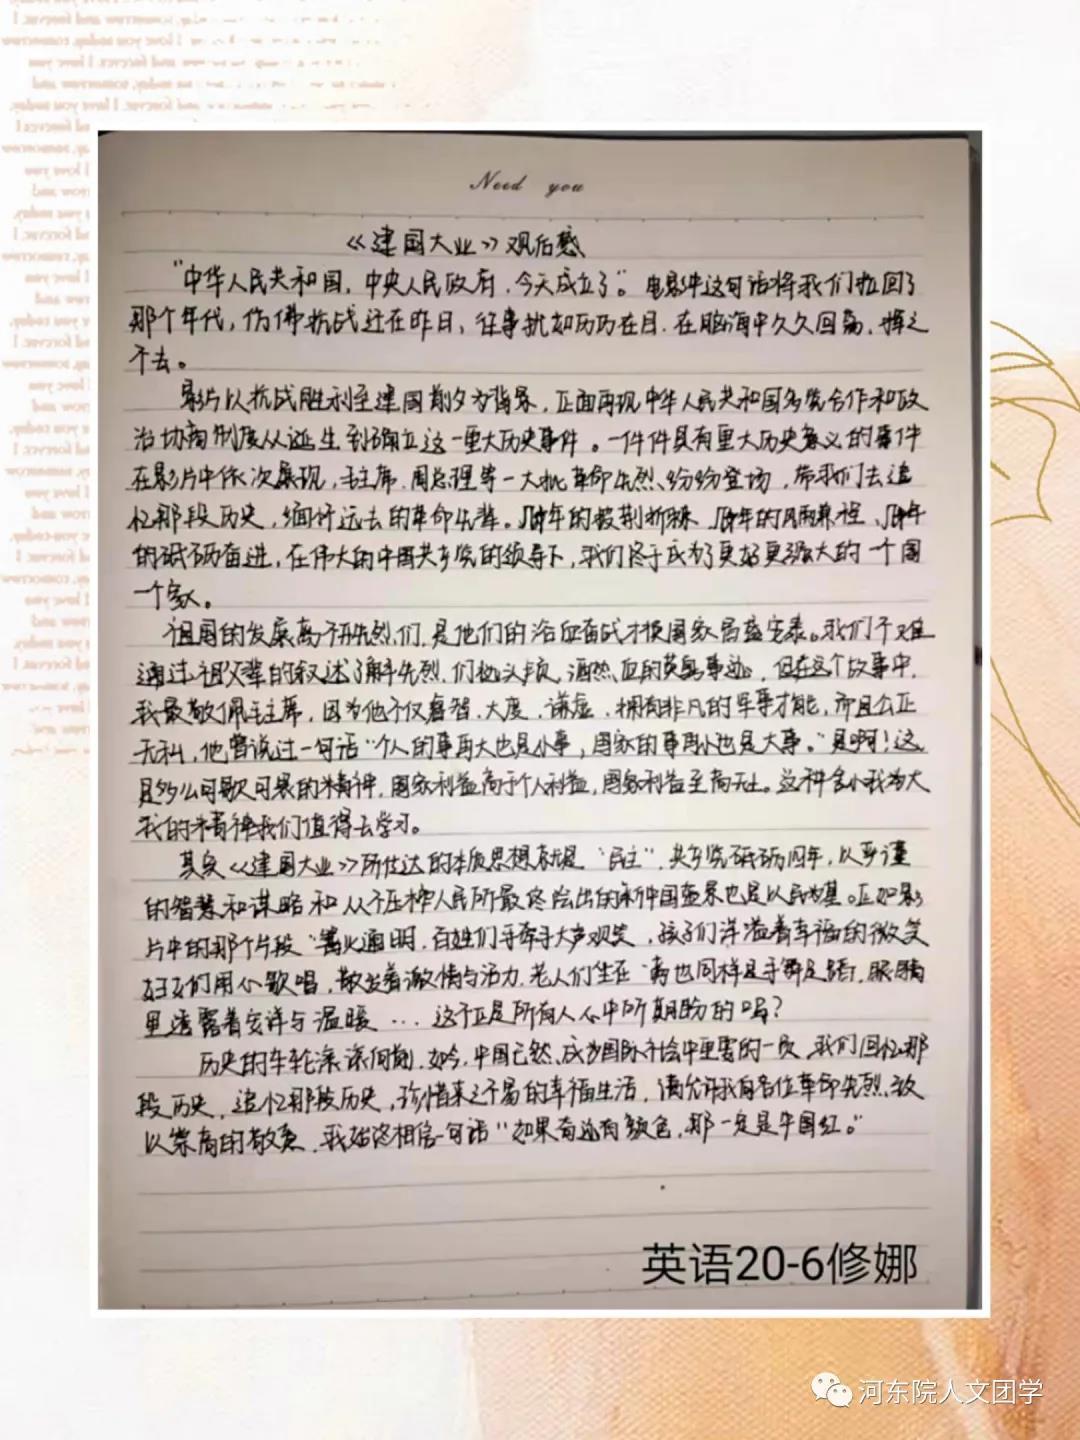 Need you
《建国大业》观后感
"中华人民共和国，中央人民政府，今天成立了"。电影中这句话将我们拉回了
那个年代，仿佛抗战还在昨日，往事犹如历历在目，在脑海中久久回荡，挥之
不去。
影片以抗战胜利至建国前夕为背景，正面再现中华人民共和国多党合作和政
治协商制度从诞生到确立这一重大历史事件。一件件具有重大历史意义的事件
在影片中依次展现，毛主席、周总理等一大批革命先烈纷纷登场，带我们去追
忆那段历史，缅怀远去的革命先辈。几十年的披荆斩棘，几十年的风雨兼程，几十年
的砥砺奋进，在伟大的中国共产党的领导下，我们终于成为了更好更强大的一个国
一个家。
祖国的发展离不开先烈们，是他们的浴血奋战才换国家昌盛完泰。我们不难
通过祖父辈的叙述了解先烈们抛头颅，洒热血的英勇事迹，但在这个故事中，
我最敬佩毛主席，因为他不仅睿智、大度、谦虚，拥有非凡的军事才能，而且公正
无私，他曾说过一句话"个人的事再大也是小事，国家的事再小也是大事。"是啊！这
是多么可歌可泣的精神，国家利益高于个人利益，国家利益至高无上。这种舍小我为大
我的精神我们值得去学习。
其实《建国大业》所传达的本质思想就是"民主"，共产党砥砺几年，以严谨
的智慧和谋略和从不压榨人民所最终绘出的新中国蓝景也是以民为基。正如影
片中的那个片段"篝火通明，百姓们手牵手大声欢笑，孩子们洋溢着幸福的微笑
妇女们用心歌唱，散发着激情与活力，老人们坐在 高也同样是手舞足蹈，眼睛
里透露着安详与温暖…这不正是所有人心中所期盼的吗？
历史的车轮滚滚向前，如今，中国已然成为国际社会中重要的一员，我们回忆那
段历史，追忆那段历史，珍惜来之不易的幸福生活，请允许我向各位革命先烈致
以崇高的敬意，我始终相信一句话"如果奇迹有颜色，那一定是中国红。"
英语20-6修娜
河东院人文团学